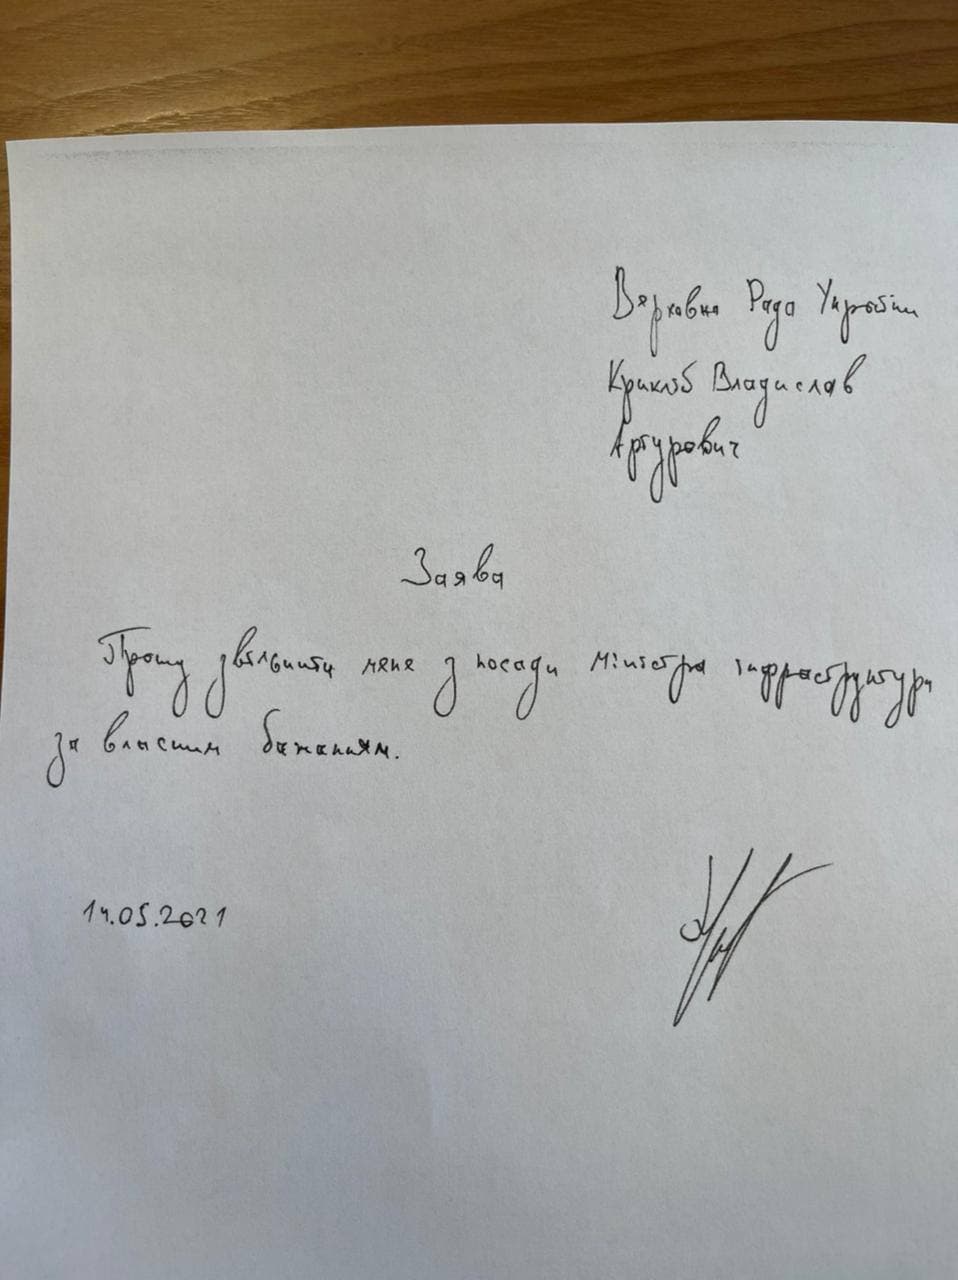 Верховна Рада України
Крикліб Владислав
Артурович
Заява
Прошу звільнити мене з посади Міністра інфраструктури
за власним бажанням.
14.05.2021